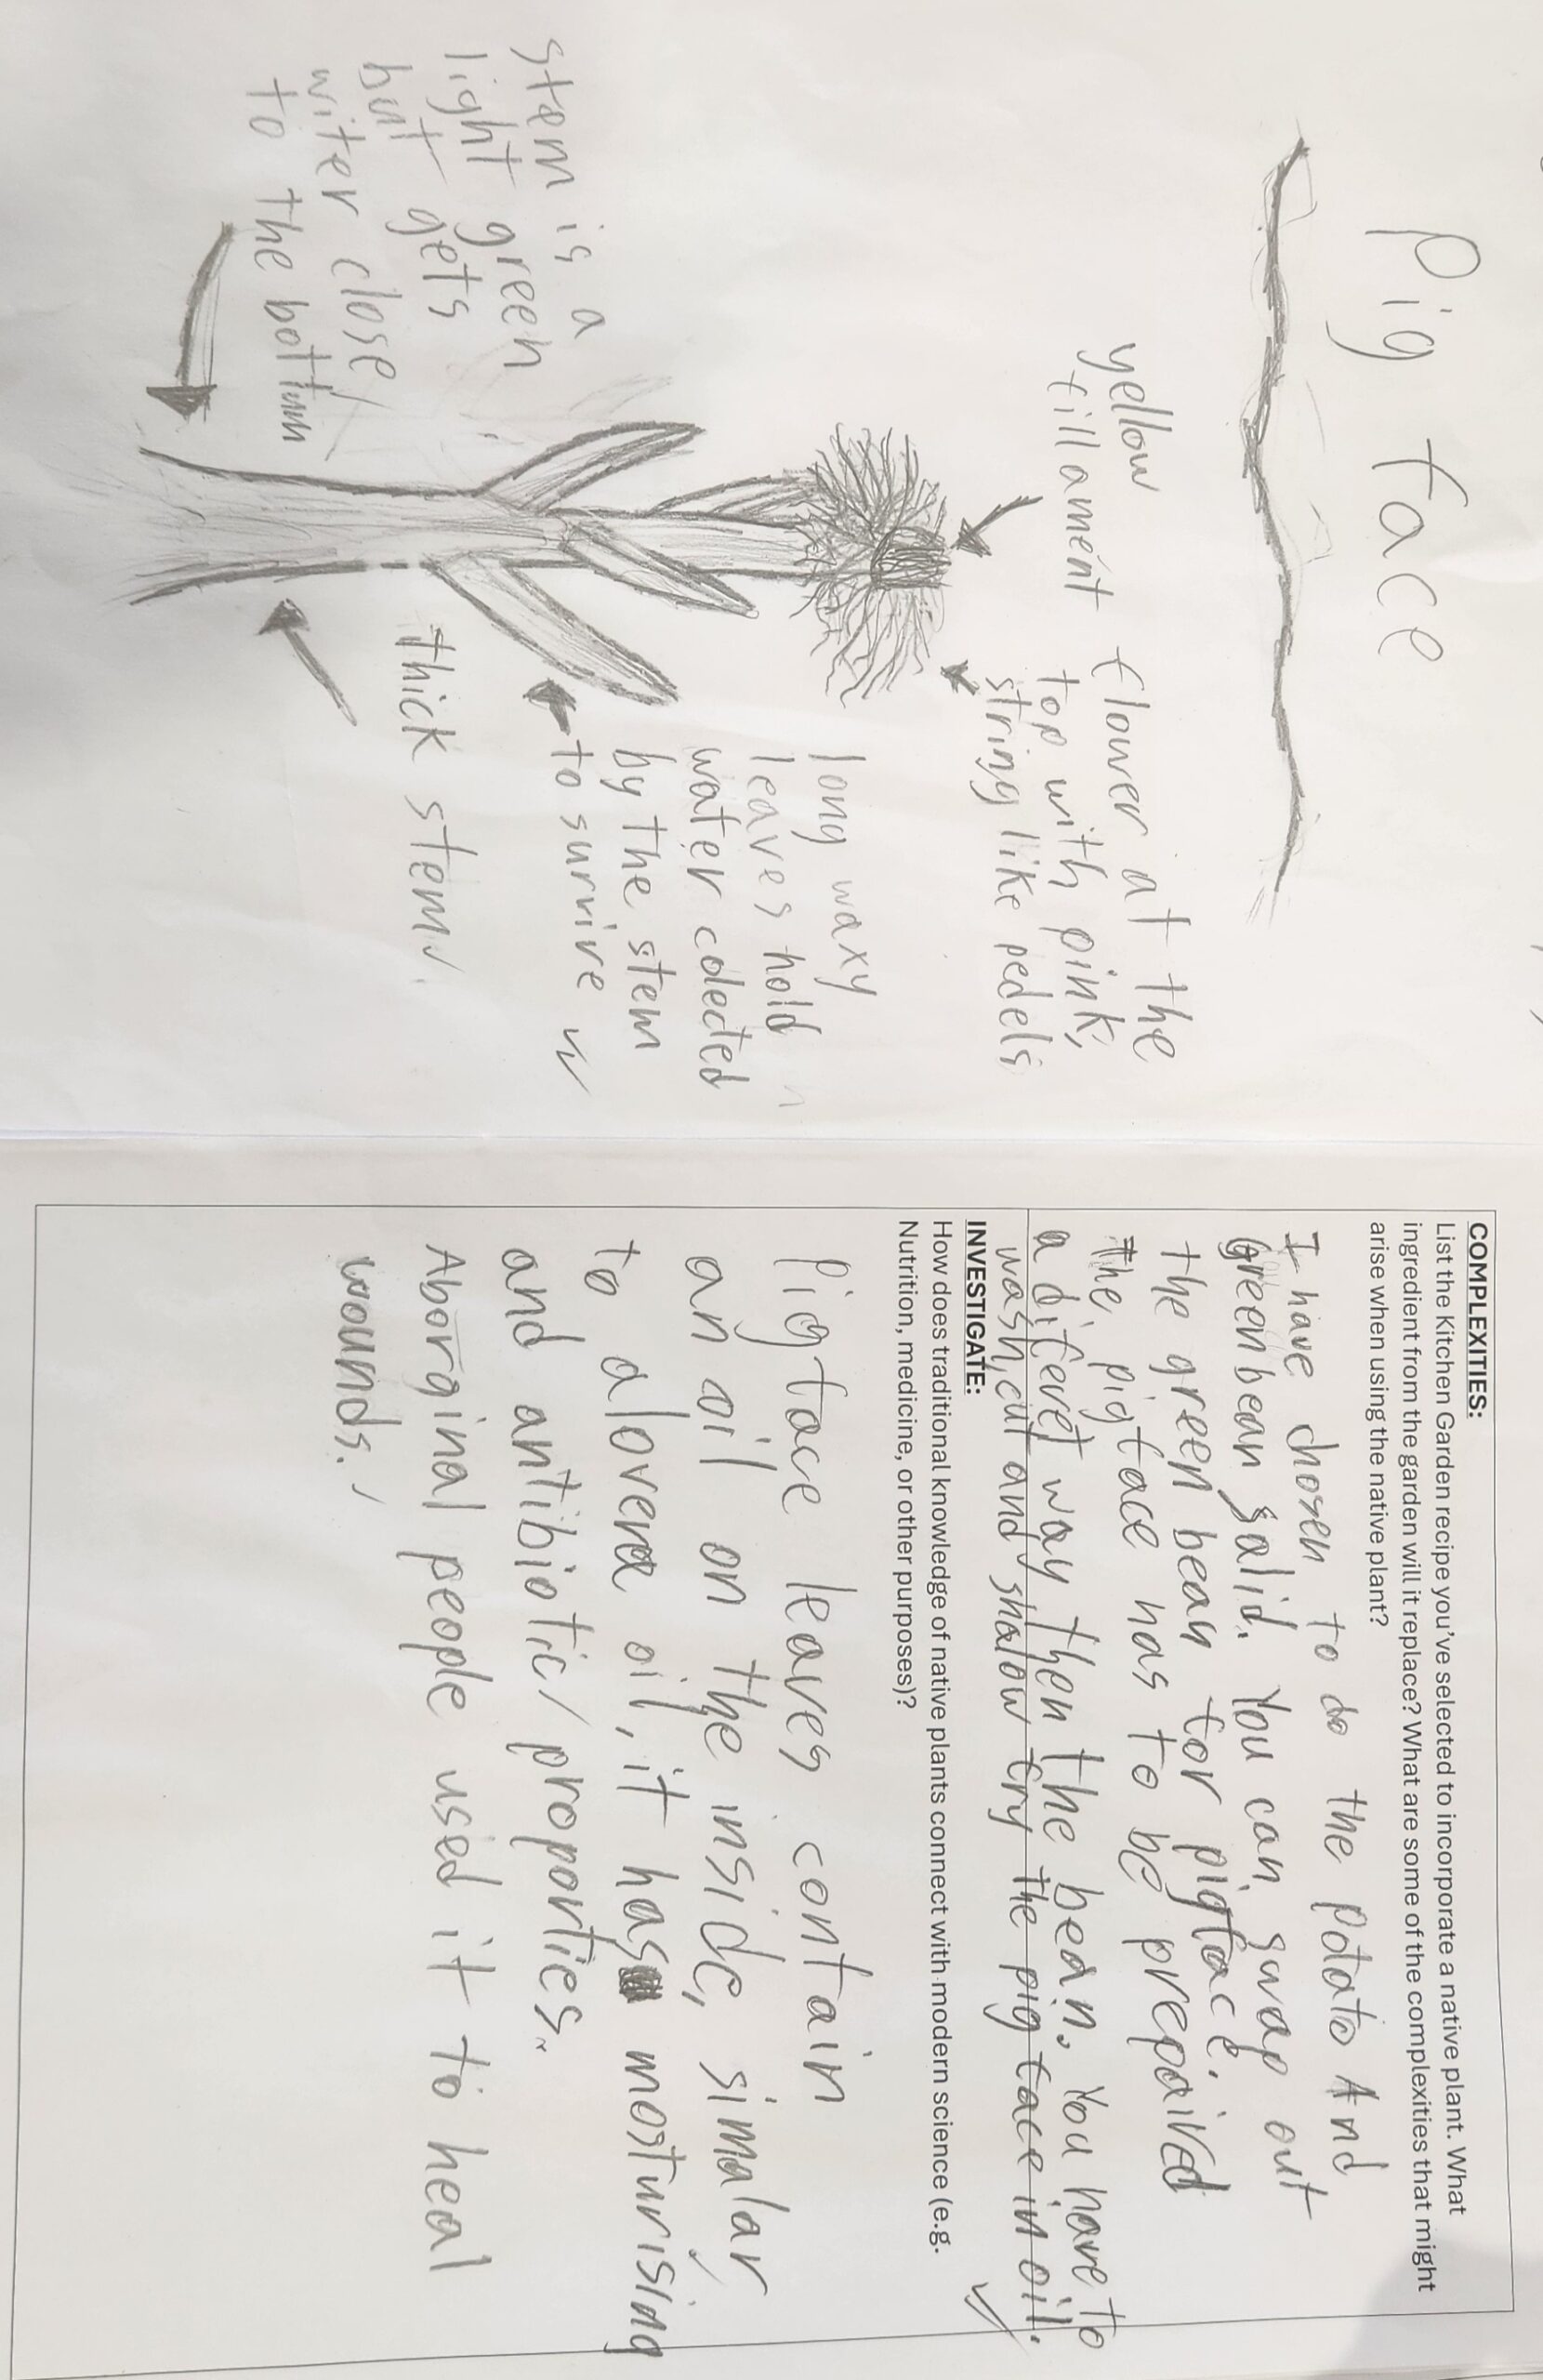 Pig face
yellow
fillament
flower at the
top with pink,
string like pedels
stem is a
light green
but gets
witer close
to the bottum
long waxy
leaves hold
water colected
by the stem
to survive
thick stem
COMPLEXITIES:
List the Kitchen Garden recipe you've selected to incorporate a native plant. What
ingredient from the garden will it replace? What are some of the complexities that might
arise when using the native plant?
I have chosen to do the potato And
Green bean salid. You can swap out
the green bean for pigface.
The pigface has to be prepaired
a diferet way then the bean. You have to
wash, cut and shalow fry the pig face in oil.
INVESTIGATE:
How does traditional knowledge of native plants connect with modern science (e.g.
Nutrition, medicine, or other purposes)?
Pigface leaves contain
an oil on the inside, simalar
to alovera oil, it has mosturising
and antibiotic proporties.
Aborginal people used it to heal
wounds.